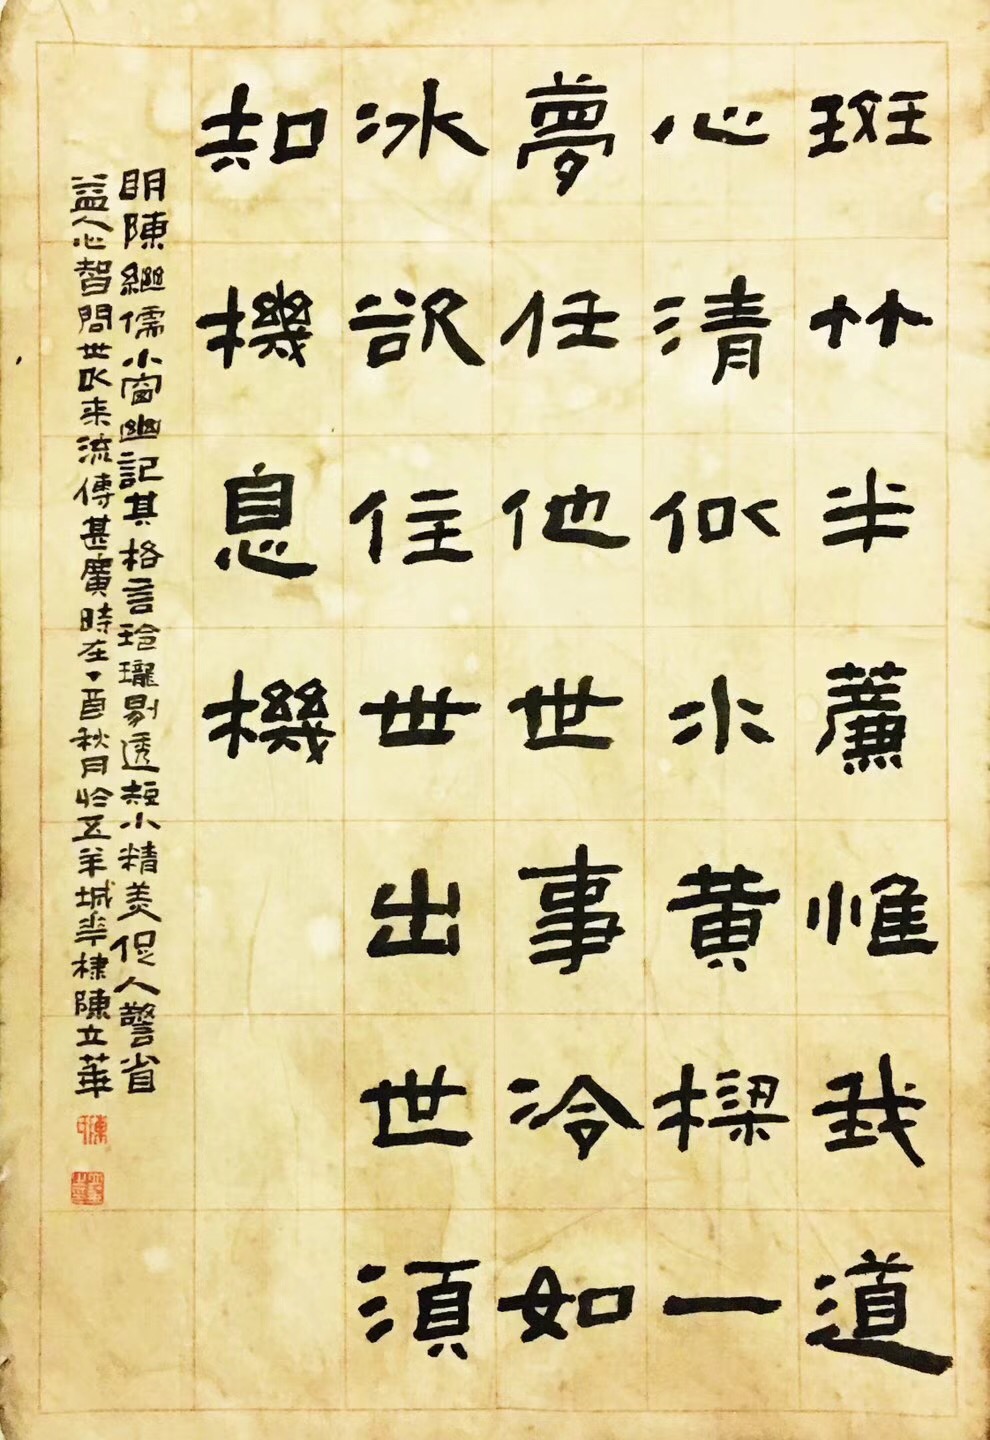 斑竹半簾惟我道
心清似水黄樑一
夢任他世事冷如
冰欲住世出世須
知機息機
明陳繼儒小窗幽記其格言玲瓏剔透短小精美促人警省
益人心智問世以来流傳甚廣時在丁酉秋月於五羊城半棣陳立華